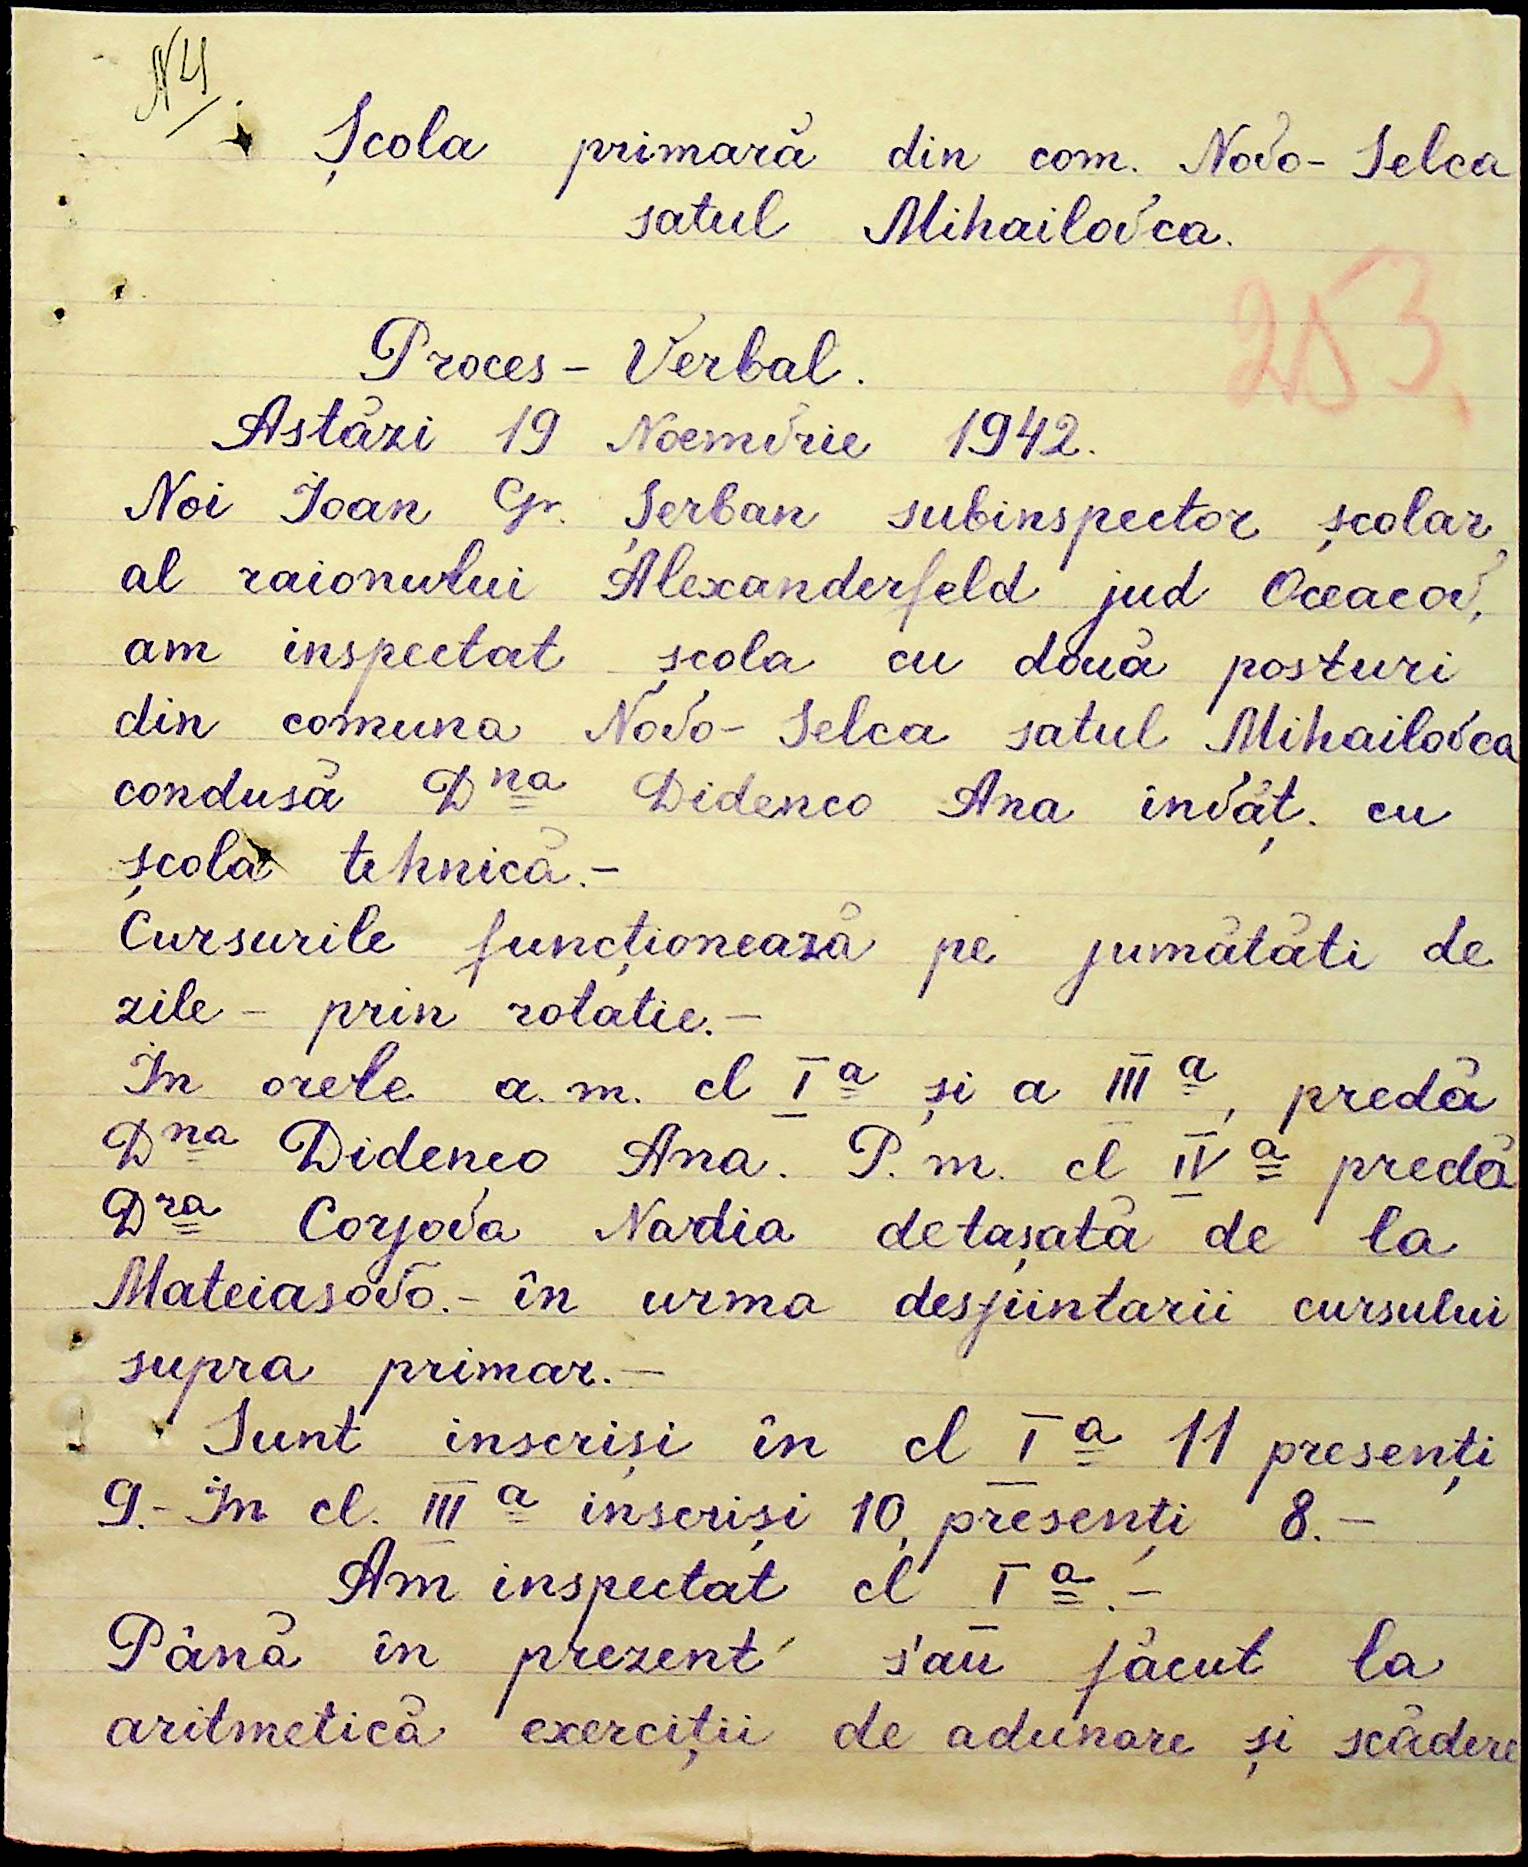 N4
Școla primară din com. Novo-Selca
satul Mihailovca.
253.
Proces-Verbal.
Astăzi 19 Noemvrie 1942.
Noi Ioan Gr. Șerban subinspector școlar,
al raionului Alexanderfeld jud Oceacov,
am inspectat școla cu două posturi
din comuna Novo-Selca satul Mihailovca
condusă Dna Didenco Ana învăț. cu
școla tehnică.-
Cursurile funcționează pe jumătăti de
zile - prin rotatie.-
In orele a.m. cl Ia și a IIIa, predă
Dna Didenco Ana. P.m. cl IVa predă
Dra Corjova Nadia detașată de la
Mateiasovo.- în urma desfiintarii cursului
supra primar.-
Sunt inscriși în cl Ia 11 presenți
9.- In cl. IIIa inscriși 10, presenți 8.-
Am inspectat cl Ia.-
Până în prezent s'au făcut la
aritmetică exerciții de adunare și scădere